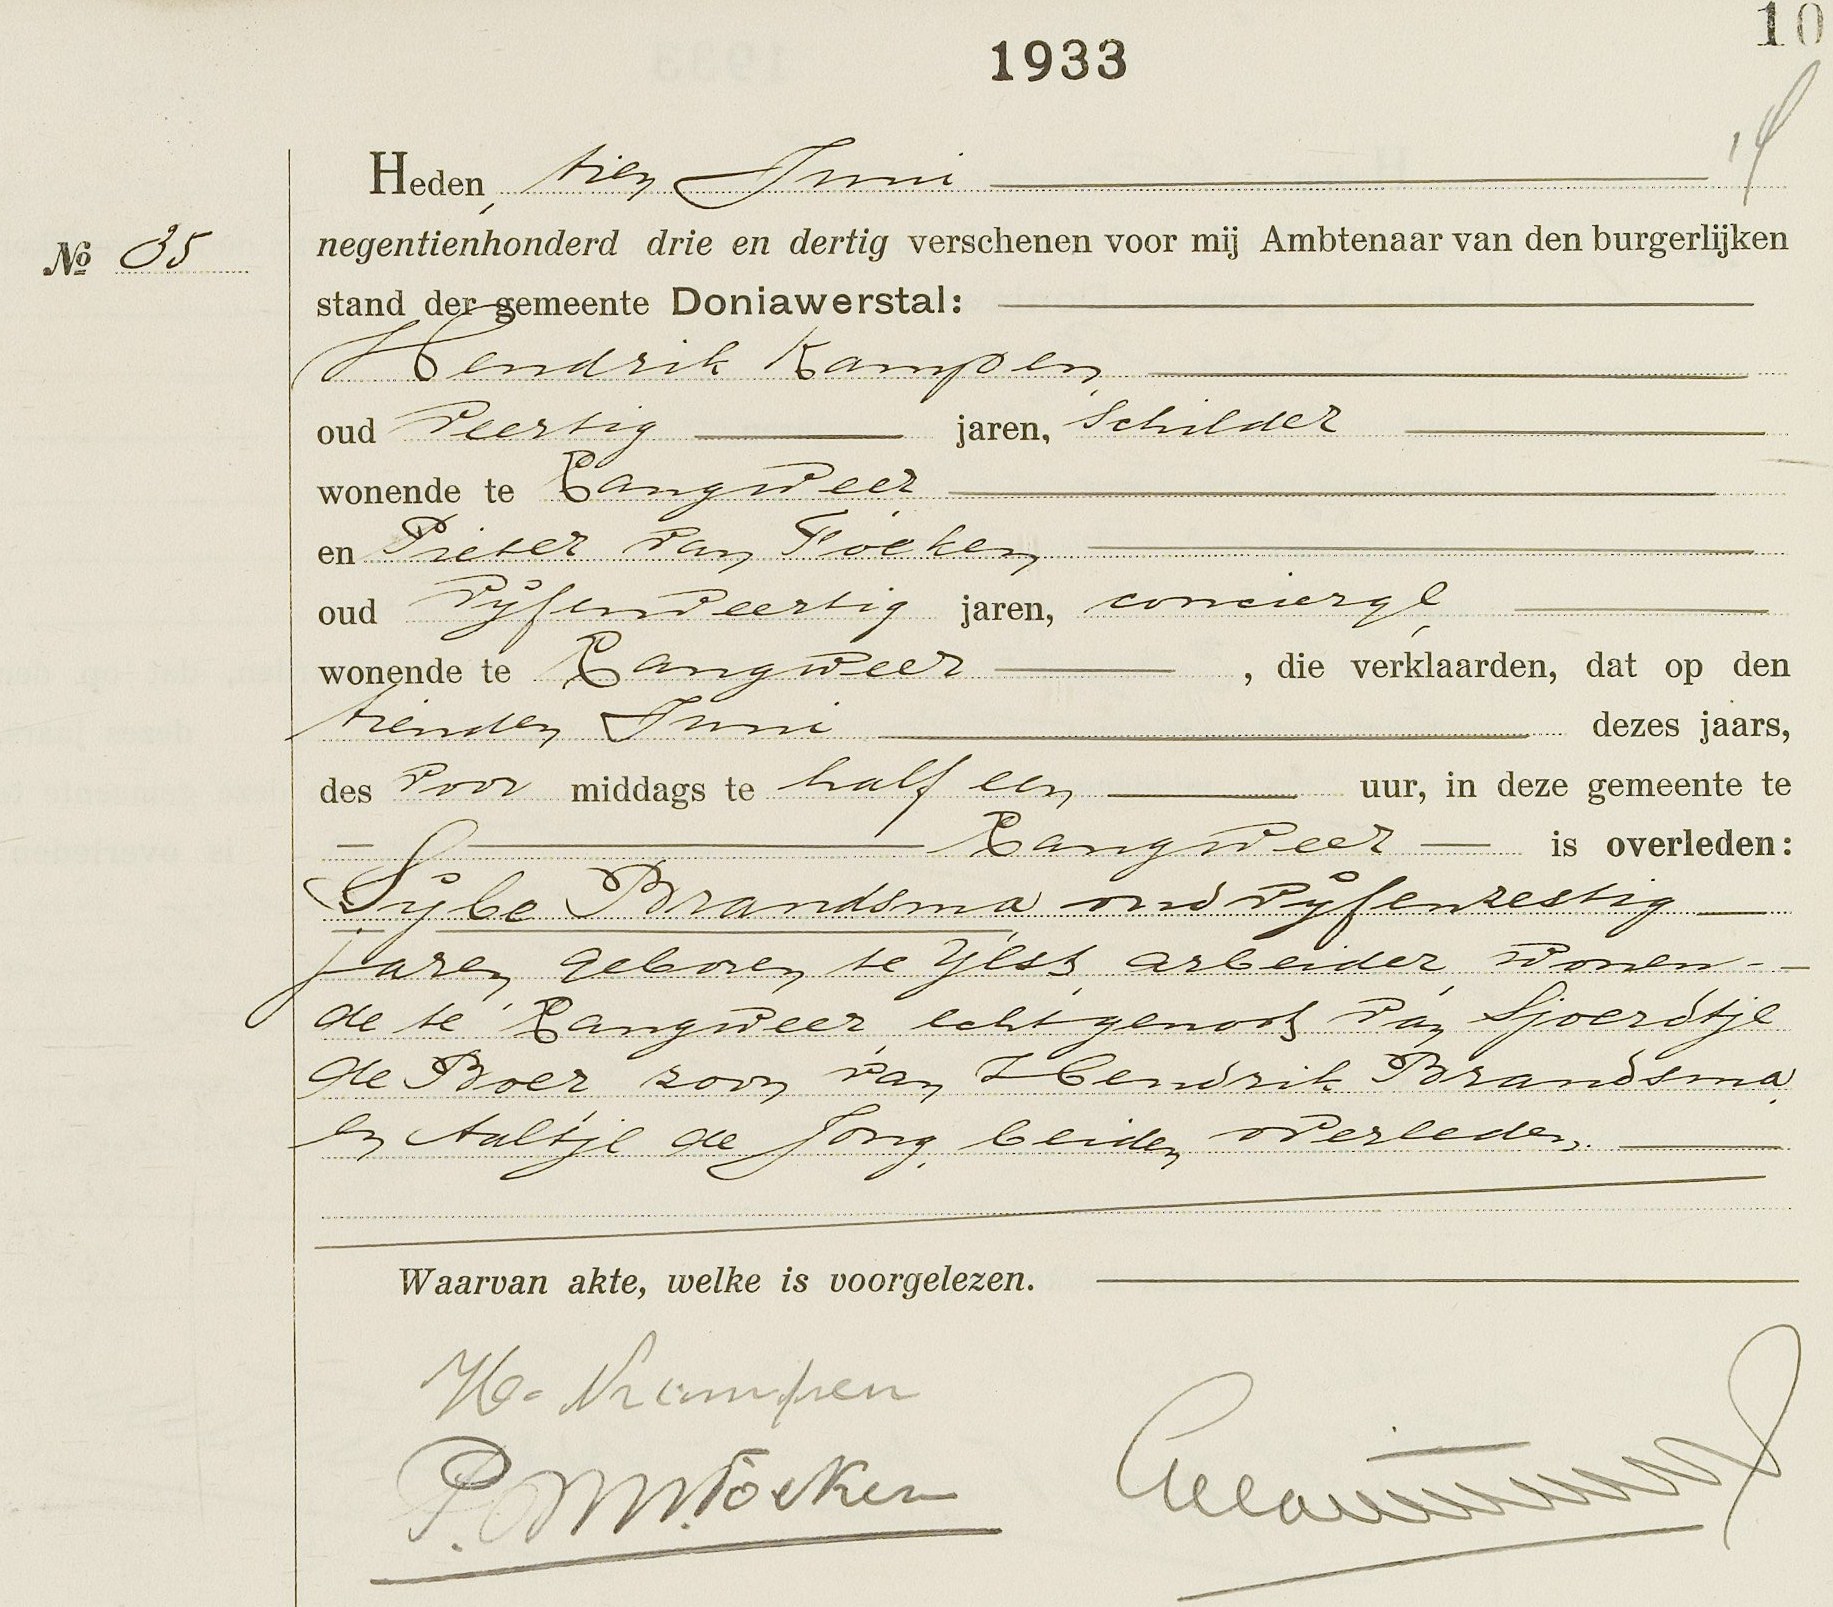 10
1933
Heden, tien Juni
No 35
negentienhonderd drie en dertig verschenen voor mij Ambtenaar van den burgerlijken
stand der gemeente Doniawerstal:
Hendrik Kampen,
oud veertig jaren, schilder
wonende te Langweer
en Pieter vanFöeken,
oud vijfenveertig jaren, concierge,
wonende te Langweer , die verklaarden, dat op den
tienden Juni dezes jaars,
des voor middags te half een uur, in deze gemeente te
Langweer is overleden:
Sijbe Brandsma oud vijfenzestig
jaren, geboren te Ylst, arbeider, wonen-
de te Langweer, echtgenoot van Sjoerdtje
de Boer zoon van Hendrik Brandsma
en Aaltje de Jong, beiden overleden.
Waarvan akte, welke is voorgelezen.
H. Kampen